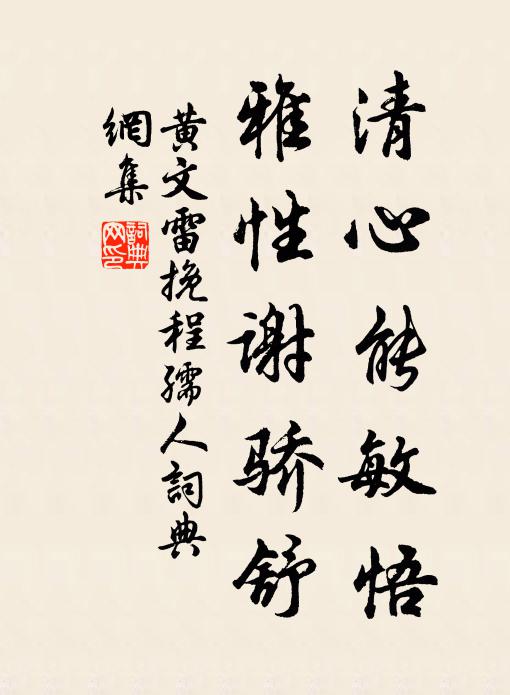 清心能敏悟
雅性谢骄舒
黄文雷挽程孺人詞典
網集
詞典网印